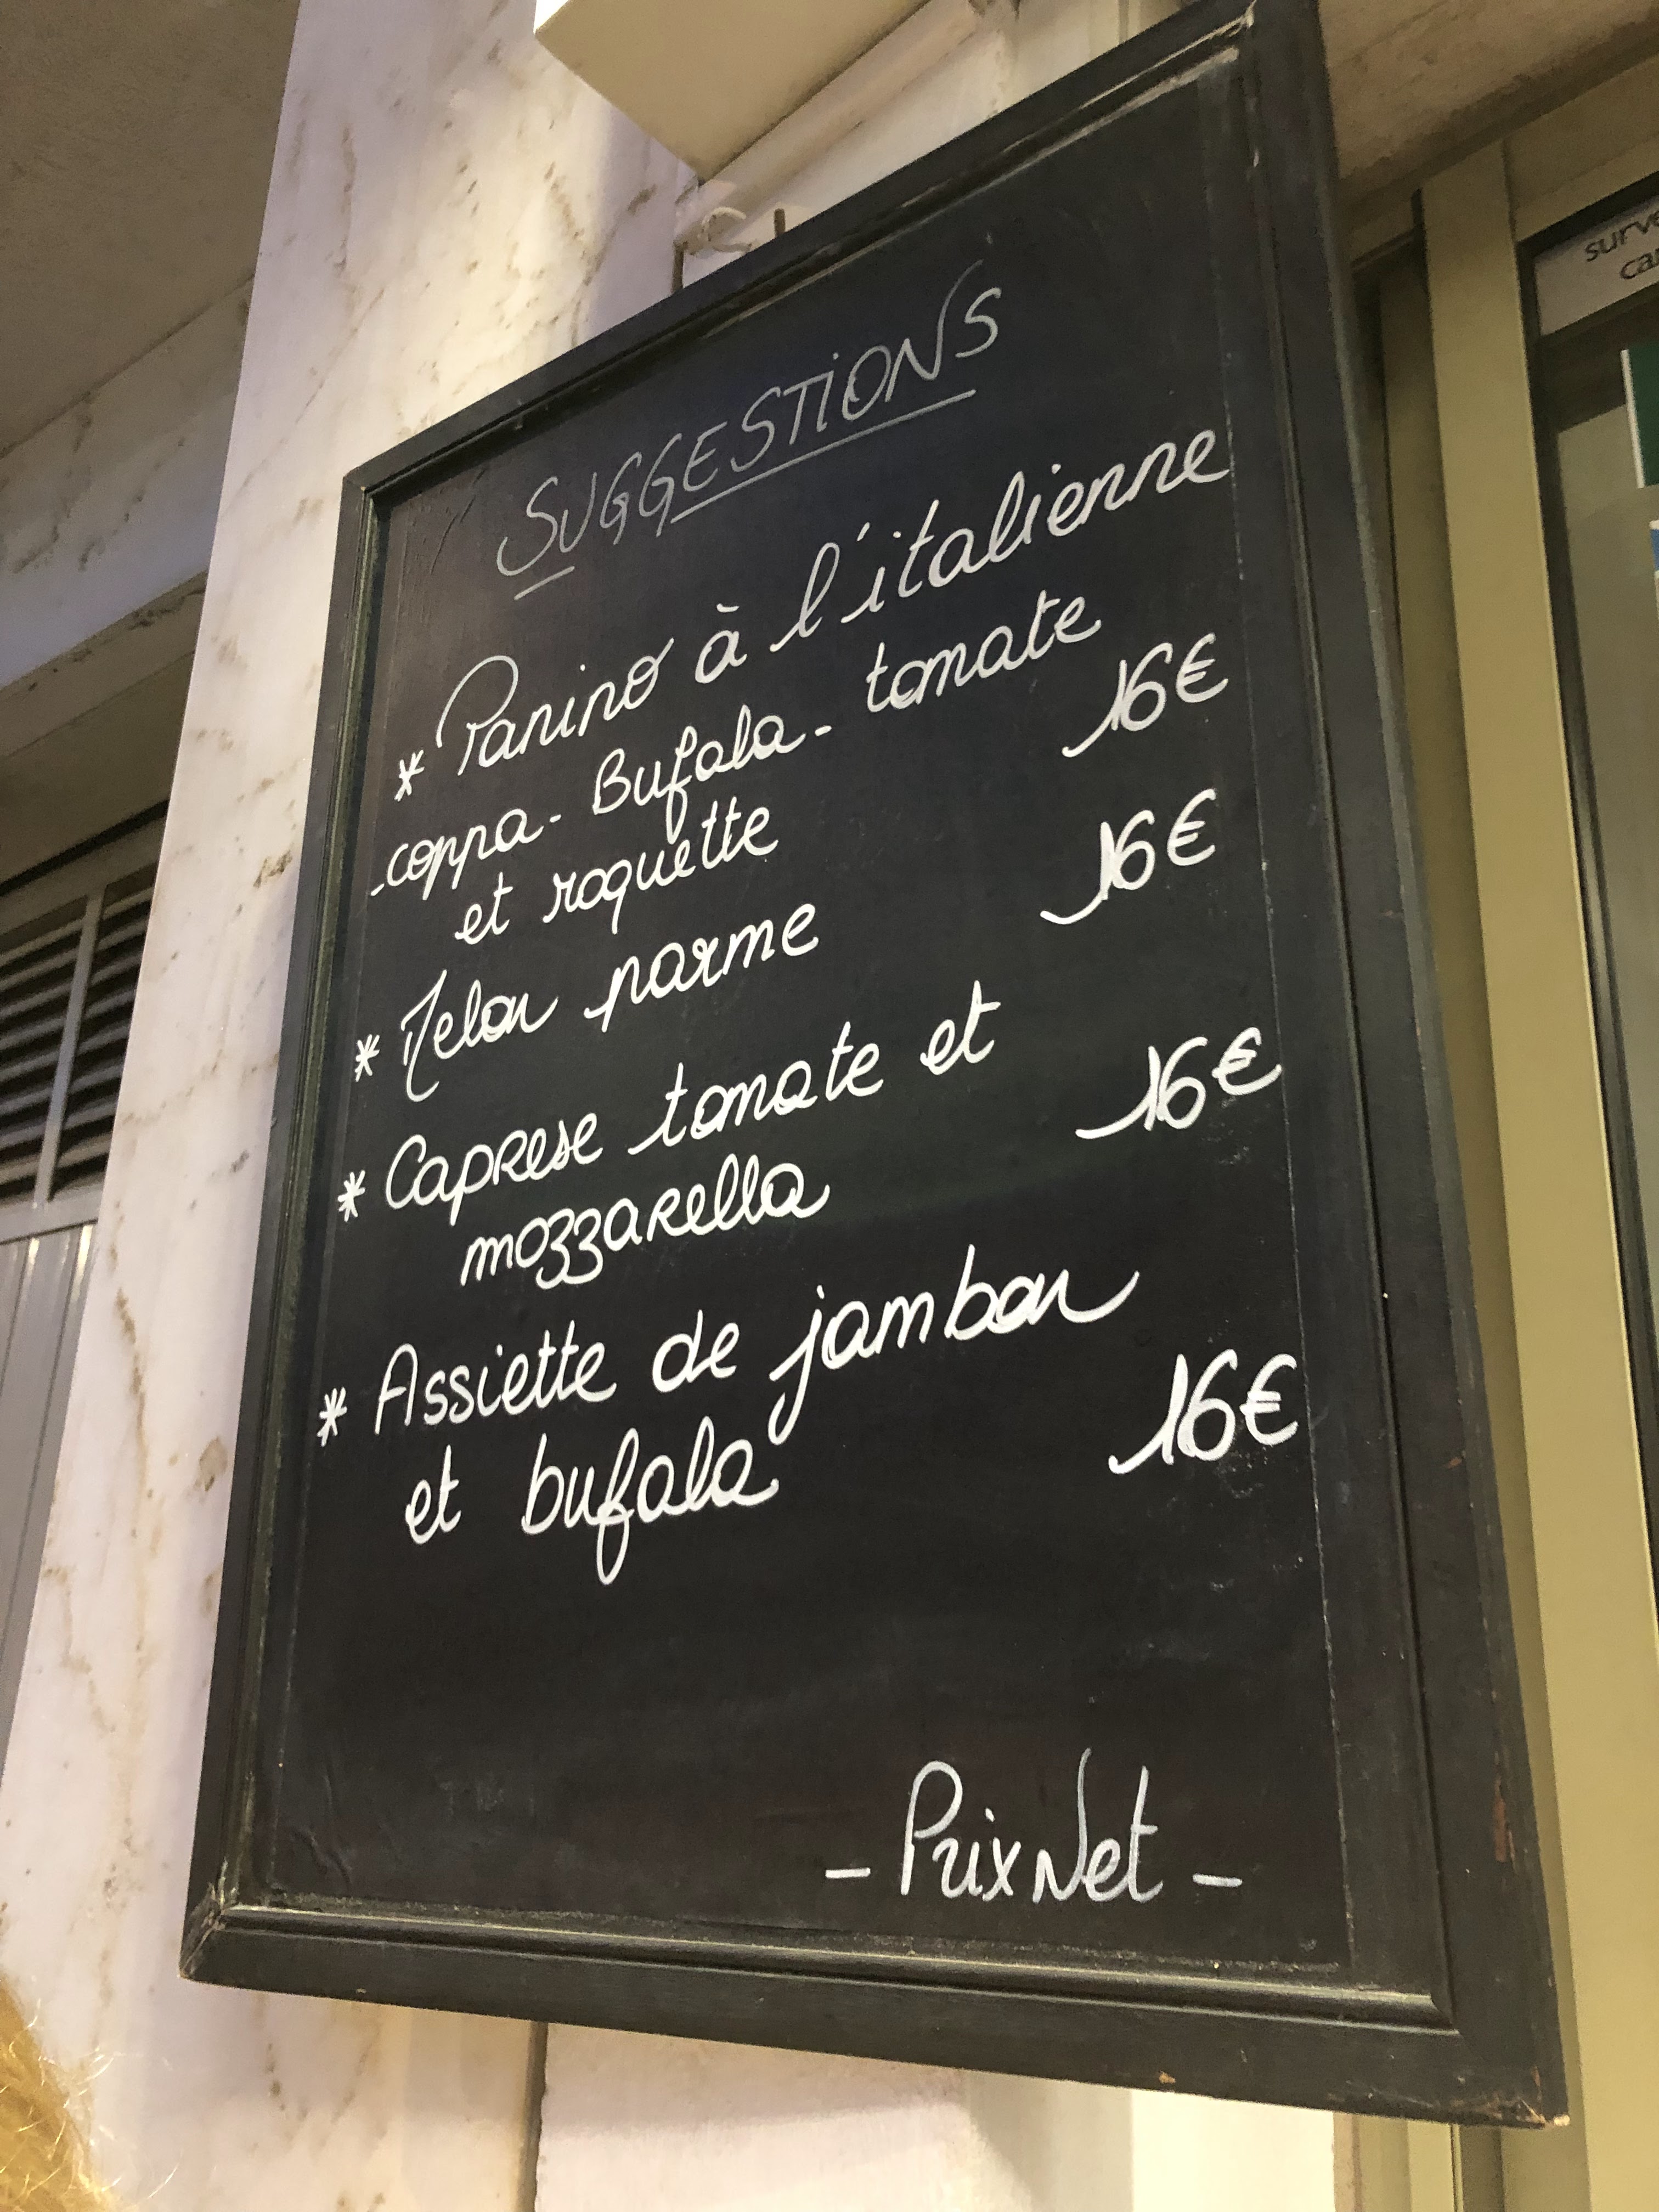 SUGGESTIONS
* Panino à l'italienne
coppa - Bufala - tomate
et roquette 16€
* Melon parme 16€
* Caprese tomate et
mozzarella 16€
* Assiette de jambon
et bufala 16€
- Prix Net -